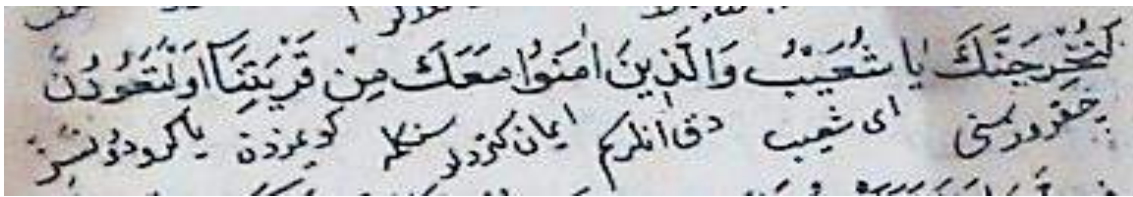 لَنُخْرِجَنَّكَ يَا شُعَيْبُ وَالَّذِينَ اٰمَنُوا مَعَكَ مِنْ قَرْيَتِنَآ اَوْلَتَعُودُنَّ
اى شعيب دقى انلركم ايمان كتردلر سنكله كويمزدن يا كرودونسز